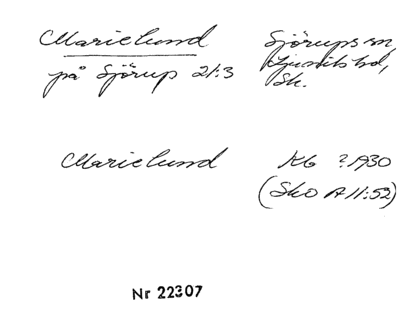 Marielund Sjörups sn,
på Sjörup 21:3 Ljunits hd,
Sk.
Marielund Kb ? 1930
(Sko A 11:52)
Nr 22307